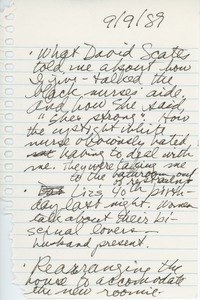 9/9/89
· What David Scate
told me about how
I jivy-talked the
black nurses' aide
and how she said
"She's strong". How
the uptight white
nurse obviously hated
having to deal with
me. They were taking me
to the bathroom out
of restraints
· Liz's 40th birth-
day last night. Women
talk about their bi-
sexual lovers -
husband present.
· Rearranging the
house to accomodate
the new roomie